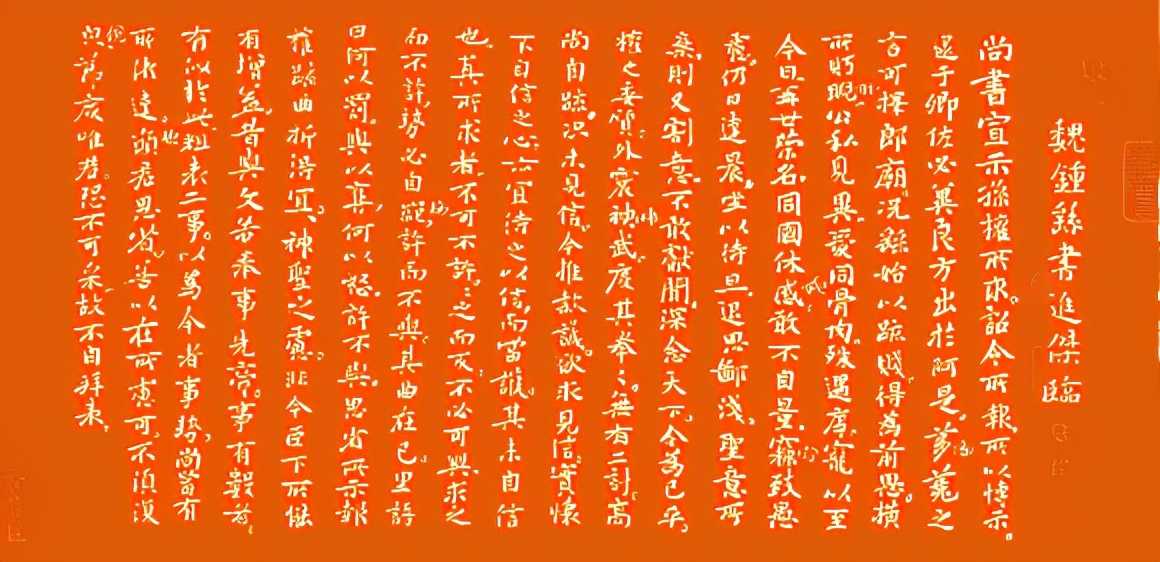 魏鍾繇書進傑臨
尚書宣示孫權所求。詔令所報,所以博示。
逮于卿佐必異良方出於阿是。芻蕘之
言可擇郎廟。況繇始以疏賤得為前恩。橫
所盱睨公私見異愛同骨肉殊遇厚寵以至
今日再世榮名同國休慼敢不自量竊致愚
慮仍日達晨坐以待旦退思鄙淺聖意所
棄則又割意不敢獻聞深念天下今為已平
權之委質外震神武度其拳〻無有二計高
尚自疏況未見信今推款誠欲求見信實懷
不自信之心亦宜待之以信而當護其未自信
也其所求者不可不許〻之而反不必可與求之
而不許勢必自絕許而不與其曲在己里語
曰何以罰與以奪何以怒許不與思省所示報
權疏曲折得宜神聖之慮非今臣下所能
有增益昔與文若奉事先帝事有數者
有似於此粗表二事以為今者事勢尚當有
所依違願君思省若以在所慮可不須復
與節度唯君恐不可采故不自拜表